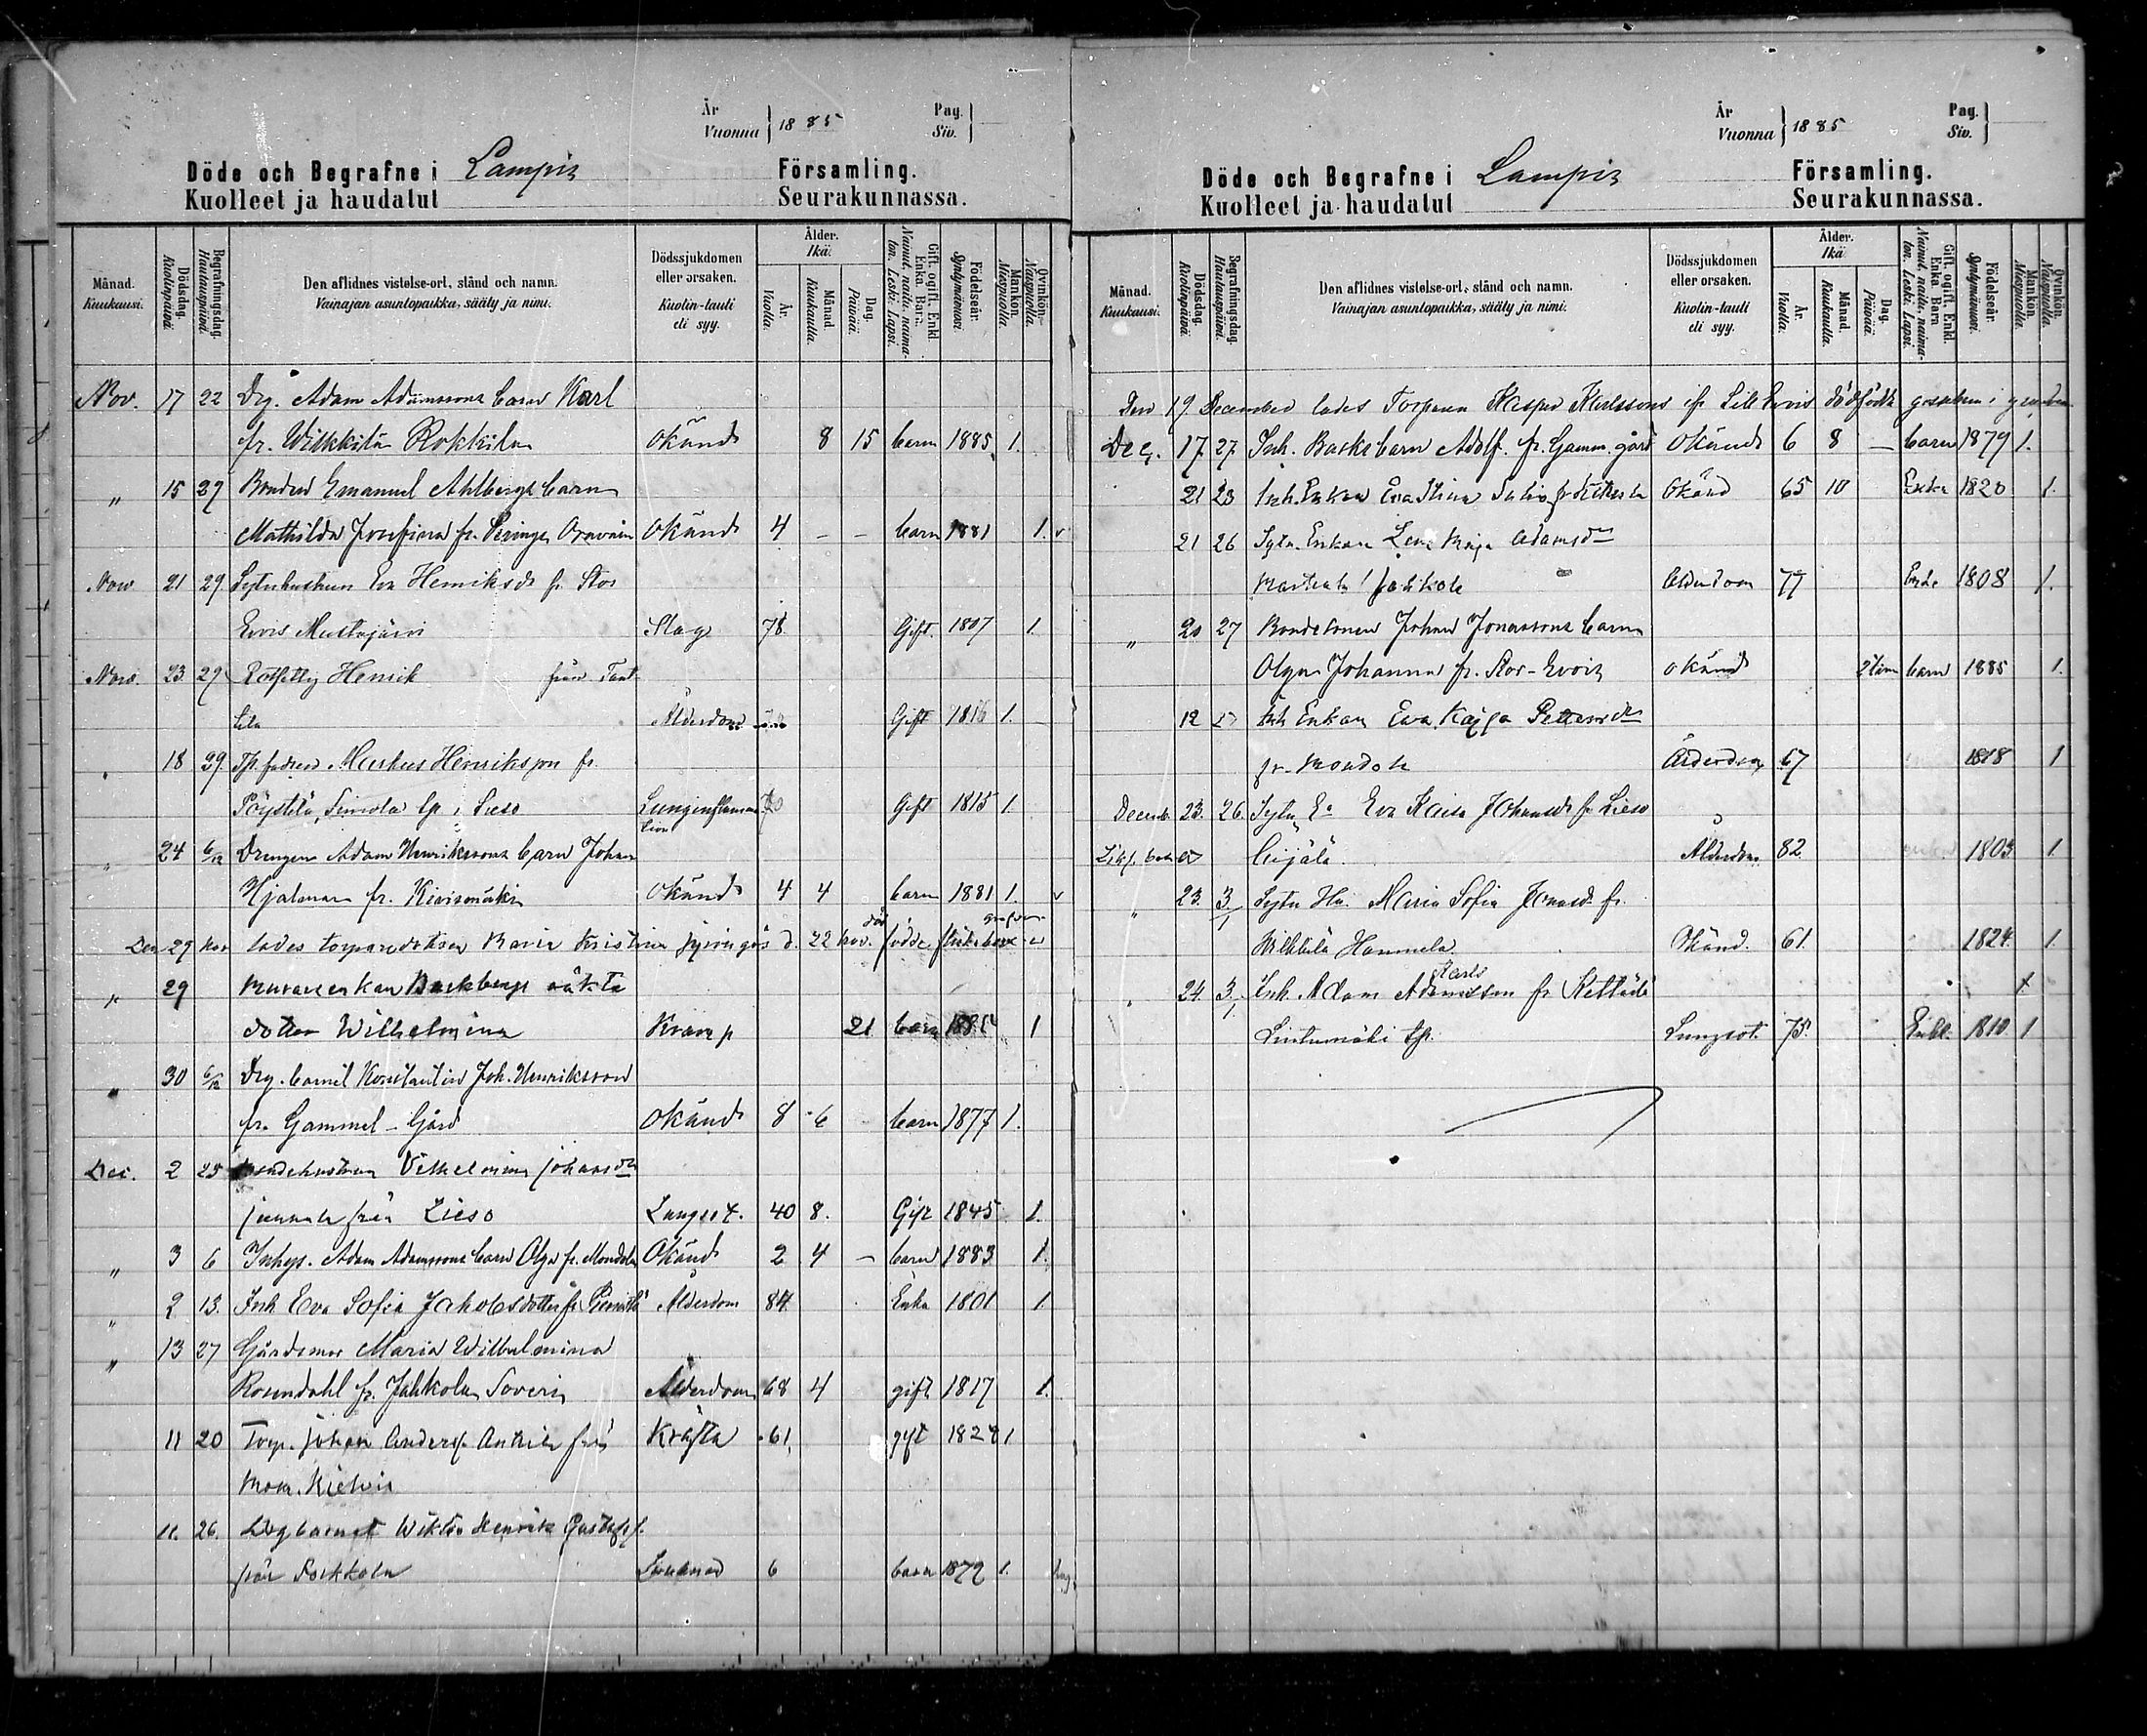 År
Vuonna } 1885
Pag.
Siv. }
Döde och Begrafne i Lampis Församling.
Kuolleet ja haudatut Seurakunnassa.
Månad. Kuukausi.
Dödsdag. Kuolinpäivä.
Begrafningsdag. Hautauspäivä.
Den aflidnes vistelse-ort, stånd och namn.
Vainajan asuntopaikka, sääty ja nimi.
Dödssjukdomen eller orsaken.
Kuolin-tauti eli syy.
Ålder. Ikä.
År. Vuotta.
Månad. Kuukautta.
Dag. Päivää.
Gift, ogift, Enkl. Enka. Barn.
Nainut, naitu, naimaton. Leski. Lapsi.
Födelseår. Syntymävuosi.
Mankön. Miespuolia.
Qvinkön. Naispuolia.
Nov. 17 22 Drg. Adam Adamssons barn Karl
fr. Wilkkilä Rokkila Okänd 8 15 barn 1885 1.
" 15 27 Bonden Emanuel Ahlbergs barn
Mathilda Josefina fr. Okänd 4 - - barn 1881 1. v
Nov 21 29 Sytnhustrun Eva Henriksdr fr. Stor
Evois Mustajärvi Slag 78 Gift. 1807 1.
Nov. 23 29 Henrik från
Ålderdom Gift 1816 1.
" 18 29 Markus Henriksson fr.
Pöystilä, Simola tp i Lieso Lunginflamma-
tion 70 Gift 1815 1.
" 24 6/12 Drengen Adam Henrikssons barn Johan
Hjalmar fr. Kivismäki Okänd 4 4 barn 1881 1. v
Den 29 nov lades torparedottren Maria Kristina d. 22 nov. död födde flickebarn
" 29 Murareenkan Backbergs oäkta
dotter Wilhelmina Kramp 21 barn 1885 1
" 30 6/12 Drg. barnet Konstantin Joh. Henriksson
fr. Gammel-Gård Okänd 8 6 barn 1877 1.
Dec. 2 25 Bondehustrun Vilhelmina Johansdr
från Lieso Lungsot. 40 8. Gift 1845 1.
" 3 6 Inhys. Adam Adamssons barn Olga fr. Mondola Okänd 2 4 - barn 1883 1.
" 2 13. Inh Eva Sofia Jakobsdotter fr. Ålderdom 84. Enka 1801 1.
" 13 27 Gårdsmor Maria Wilhelmina
Rosendahl fr. Jahkola Soveri Ålderdom 68 4 gift 1817 1.
11 20 Torp. Johan Andersf. Anttila från Kräfta 61, gift 1824 1
Mom. Kielvis
11. 26. Drgbarnet Wiktor Henrik Gustafsf.
från Porkkola 6 barn 1879 1.
År
Vuonna } 1885
Pag.
Siv. }
Döde och Begrafne i Lampis Församling.
Kuolleet ja haudatut Seurakunnassa.
Månad. Kuukausi.
Dödsdag. Kuolinpäivä.
Begrafningsdag. Hautauspäivä.
Den aflidnes vistelse-ort, stånd och namn.
Vainajan asuntopaikka, sääty ja nimi.
Dödssjukdomen eller orsaken.
Kuolin-tauti eli syy.
Ålder. Ikä.
År. Vuotta.
Månad. Kuukautta.
Dag. Päivää.
Gift, ogift, Enkl. Enka. Barn
Nainut, naitu, naimaton. Leski. Lapsi.
Födelseår. Syntymävuosi.
Mankön. Miespuolia.
Qvinkön. Naispuolia.
Den 19 December lades Torparen Kasper Karlssons fr. Lill Evois dödfödda gossebarn i grafven
Dec. 17. 27. Inh. Backs barn Adolf. fr. Gamm. gård Okänd 6 8 - barn 1879 1.
21 23 Inh. Enkan Eva Stina Okänd 65 10 Enka 1820 1.
21 26 Sytn. Enkan Lena Maja Adamsdr
Jahkola Ålderdom 77 Enka 1808 1.
" 20 27 Bondesonen Johan Jonassons barn
Olga Johanna fr. Stor-Evois okänd 2 tim barn 1885 1.
12 27 Inh Enkan Eva Kajsa Pettersdr
fr. Mondola Ålderdom 67 1818 1
Decemb. 23. 26. Sytn. Ea Eva Kaisa Johansdr fr Lieso
Ålderdom. 82 1803 1.
" 23. 3/1 Sytn Hu. Maria Sofia Jonasd. fr.
Wilkkilä Hammela. Okänd. 61. 1824. 1.
" 24. 3/1. Inh. Adam Karls Adamsson fr Kostila
Lintumäki tp. Lungsot. 75. Enkl. 1810 1